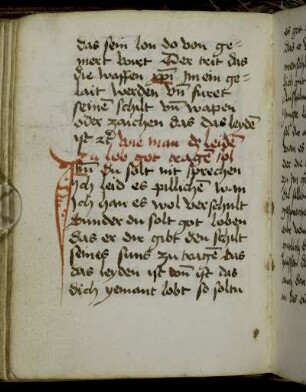 das sein lon do von ge-
mert wirt Der trit das
die waffen xpi Jm ein ge-
lait werden vn̄ furet
seinen schilt vn̄ wapen
oder zaichen das das leydē
ist ꝛc̄ wie man dz leiden
zu lob got tragē sol
du solt nit sprechen
Ich leid es pillichen wan
ich han es wol verschult
sunder du solt got loben
das er dir gibt den schilt
seines suns zu tragē das
das leyden ist wan ist das
dich yemant lobt so soltu